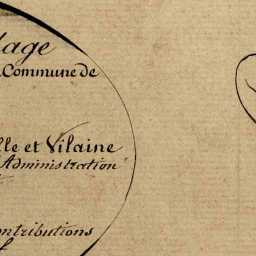 lage
Commune de
lle et Vilaine
Administration
ontributions